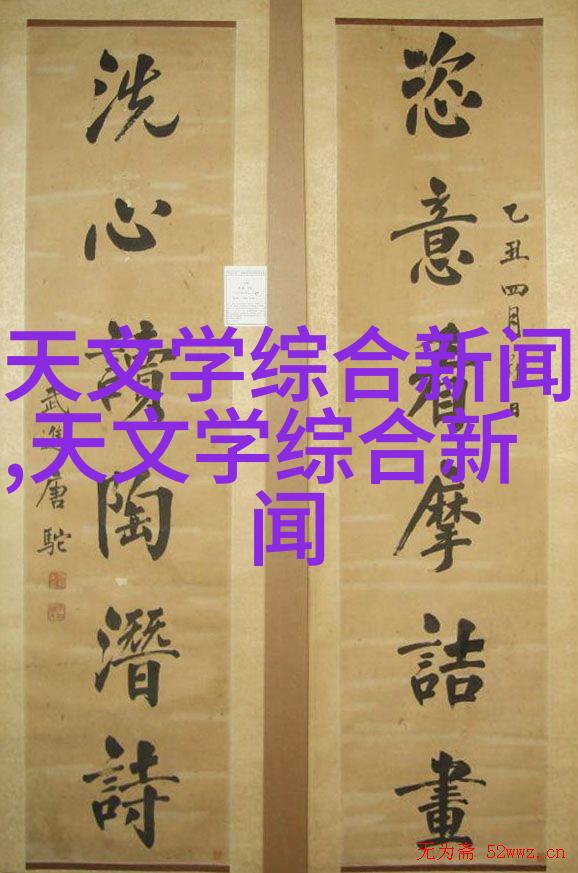 恣意看摩詰畫
乙丑四月日
洗心讀陶潛詩
武進唐駝
天文学综合新闻
,天文学综合新
闻
无为斋 52wwz.cn